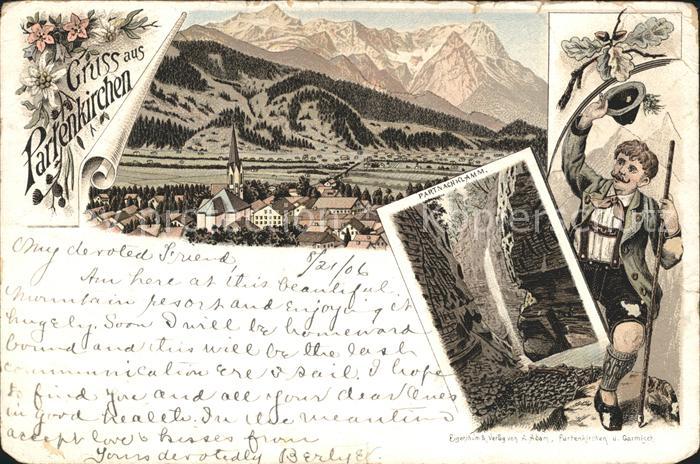 Gruss aus
Partenkirchen
PARTNACHKLAMM.
My devoted Friend, 8/21/06
Am here at this beautiful
mountain resort and enjoying it
hugely. Soon I will be homeward
bound and this will be the last
communication ere I sail. I hope
to find you and all your dear ones
in good health. In the meantime
accept love & kisses from
Yours devotedly
Eigenthum & Verlag von A. Adam, Partenkirchen u. Garmisch.